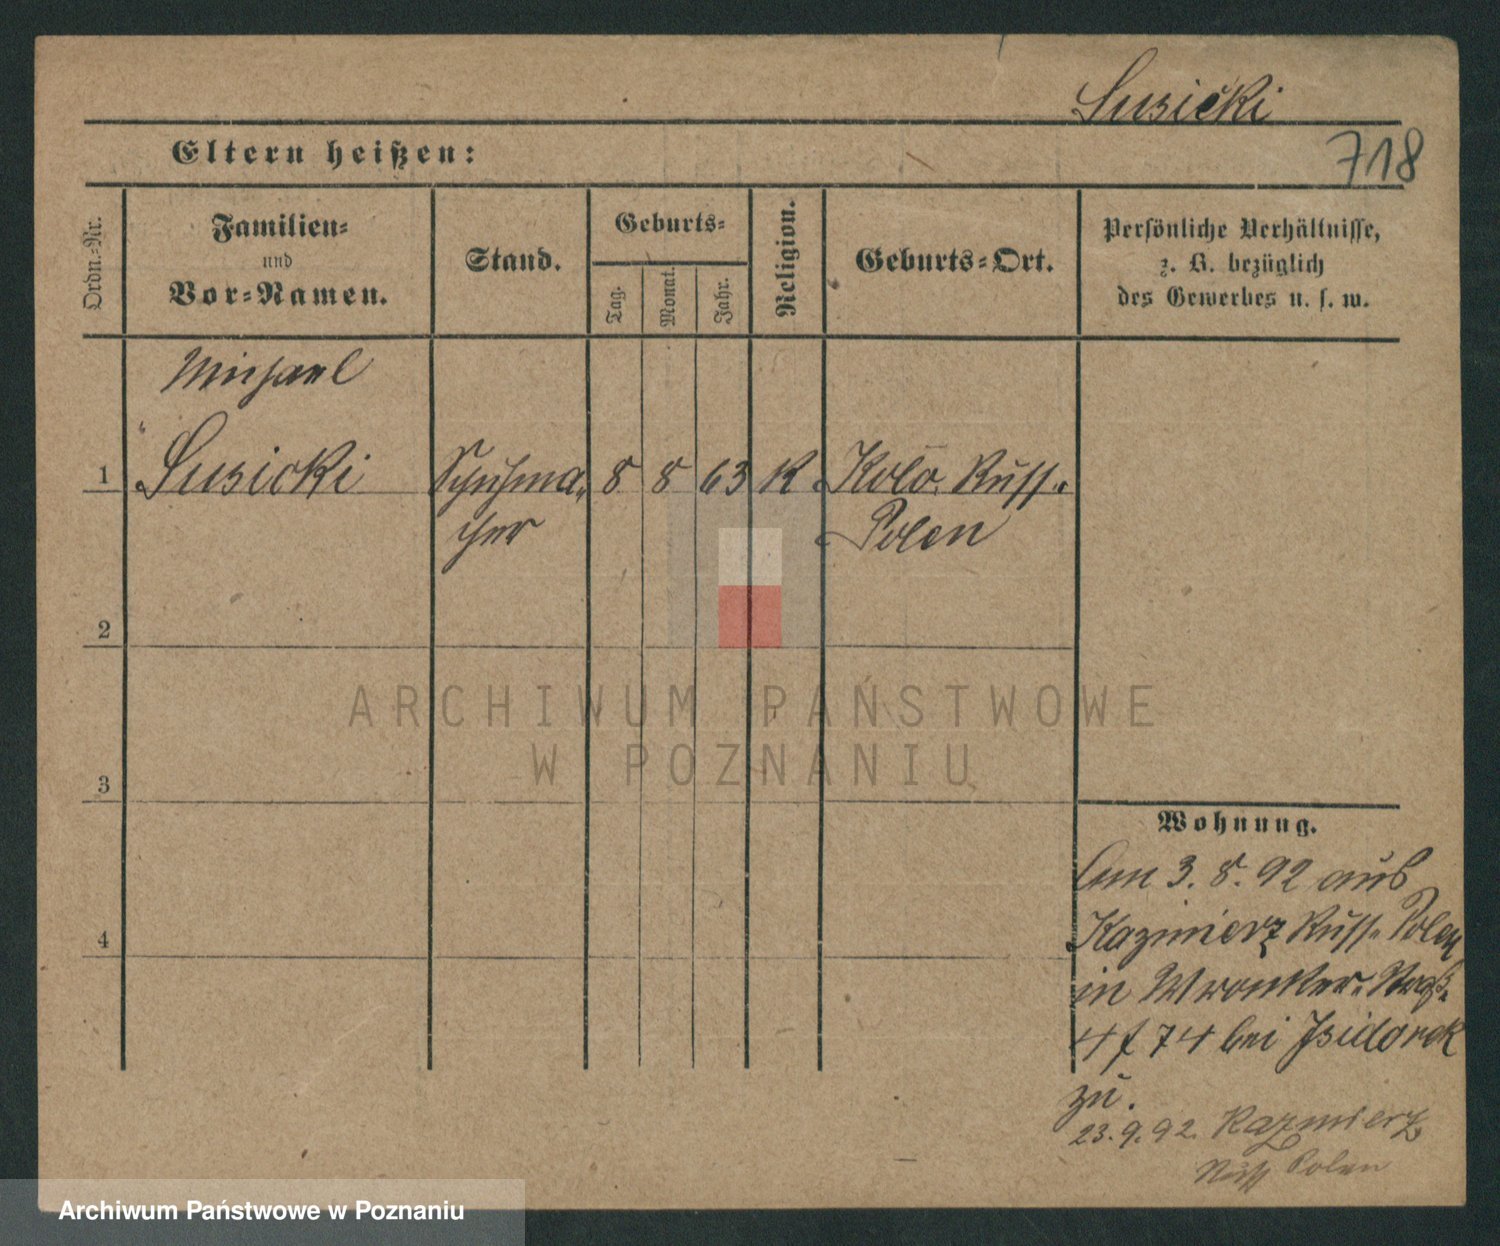 Susicki
718
Eltern heißen:
Ordn.-Nr.
Familien-
und
Vor-Namen.
Stand.
Geburts-
Tag.
Monat.
Jahr.
Religion.
Geburts-Ort.
Persönliche Verhältnisse,
z. B. bezüglich
des Gewerbes u. s. w.
Michael
1 Susicki Schuhma- 8 8 63 K Kolo. Russ.
cher Polen
2
3
4
Wohnung.
Am 3. 8. 92 aus
Kazimierz Russ. Polen
in Wronker-Straß.
4 f 74 bei Isidorek
zu.
23.9.92. Kazmierz
Russ Polen
ARCHIWUM PAŃSTWOWE
W POZNANIU
Archiwum Państwowe w Poznaniu